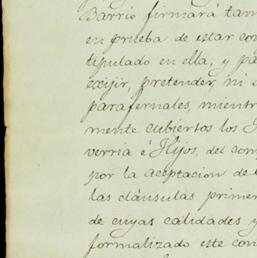 Barrio firmará tam
en prueba de estar con
tipulado en ella; y pa
exijir, pretender, ni
parafernales, mientr
mente cubiertos los
verria é Hijos, del com
por la aceptacion de
las cláusulas primer
de cuyas calidades y
formalizado este con